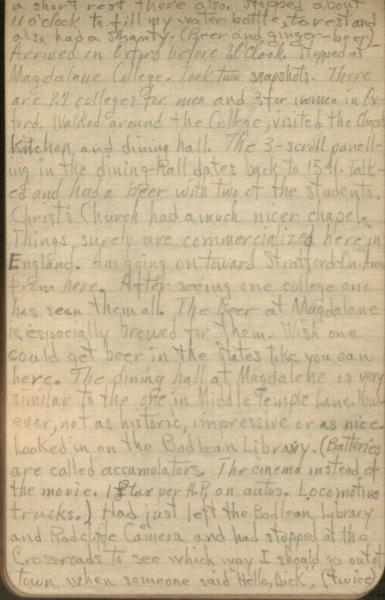 a short rest there also. Stopped about
11 o'clock to fill my water bottle, to rest and
also had a shanty. (Beer and ginger-beer)
Arrived in Oxford before 2 O'Clock. Stopped at
Magdalene College. Took two snapshots. There
are 27 colleges for men and 3 for women in Ox-
ford. Walked around the College, visited the Chapel
Kitchen, and dining hall. The 3-scroll panell-
ing in the dining-Hall dates back to 1541. Talk-
ed and had a beer with two of the students.
Christ's Church had a much nicer chapel.
Things surely are commercialized here in
England. Am going on toward Stratford-On-Avon
from here. After seeing one college one
has seen them all. The Beer at Magdalene
is especially brewed for them. Wish one
could get beer in the states like you can
here. The dining hall at Magdalene is very
similar to the one in Middle Temple Lane. How-
ever, not as historic, impressive or as nice.
Looked in on the Bodlean Library. (Batteries
are called accumulators. The cinema instead of
the movie. tax per H.P. on autos. Locomotive
trucks.) Had just left the Bodlean Library
and Radcliffe Camera and had stopped at the
Crossroads to see which way I should go out of
town when someone said "Hello, Dick", (twice)